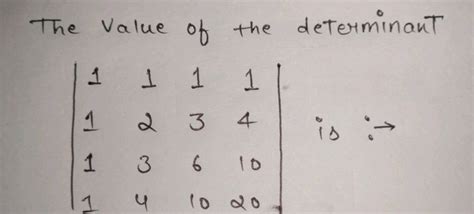 The Value of the determinant
1 1 1 1
1 2 3 4 is :→
1 3 6 10
1 4 10 20